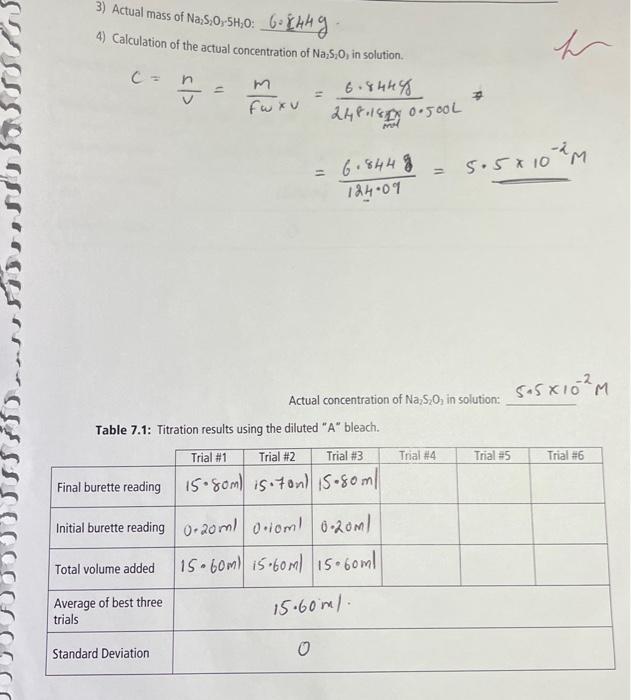 3) Actual mass of Na₂S₂O₃·5H₂O: 6.844g.
4) Calculation of the actual concentration of Na₂S₂O₃ in solution.
C = n/V = m/(Fw × V) = 6.844g/(248.18 g/mol × 0.500L)
= 6.844g/124.09 = 5.5 × 10⁻² M
Actual concentration of Na₂S₂O₃ in solution: 5.5 × 10⁻² M
Table 7.1: Titration results using the diluted "A" bleach.
Trial #1 Trial #2 Trial #3 Trial #4 Trial #5 Trial #6
Final burette reading 15.80ml 15.70ml 15.80ml
Initial burette reading 0.20ml 0.10ml 0.20ml
Total volume added 15.60ml 15.60ml 15.60ml
Average of best three
trials 15.60ml.
Standard Deviation 0